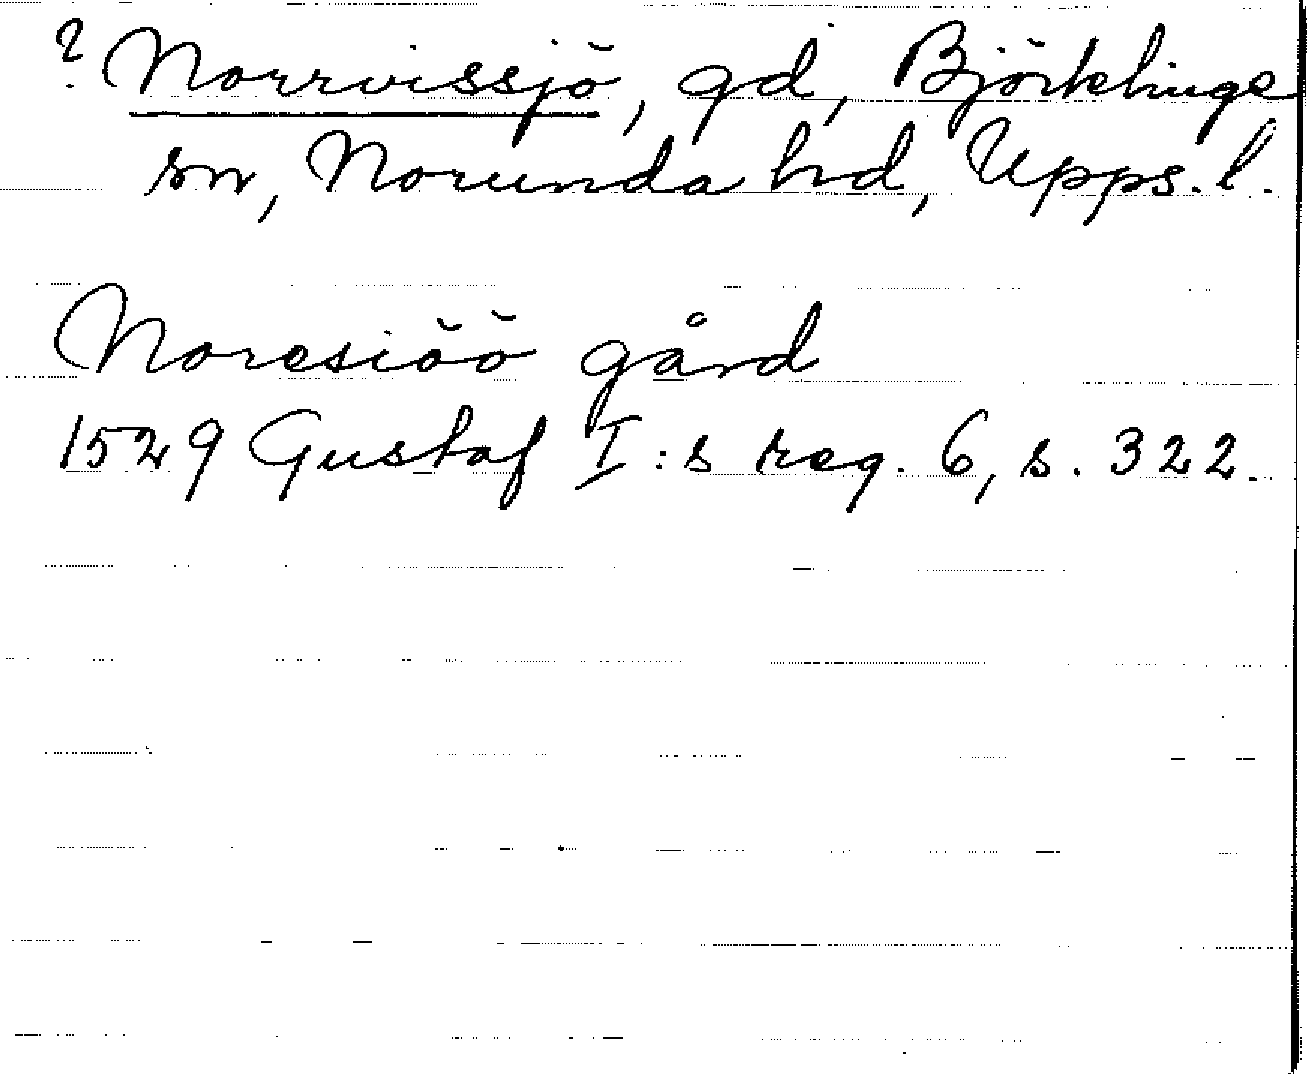 ? Norrvissjö, gd, Björklinge
sn, Norunda hd, Upps. l.
Noresiöö gård
1529 Gustaf I:s reg. 6, s. 322.